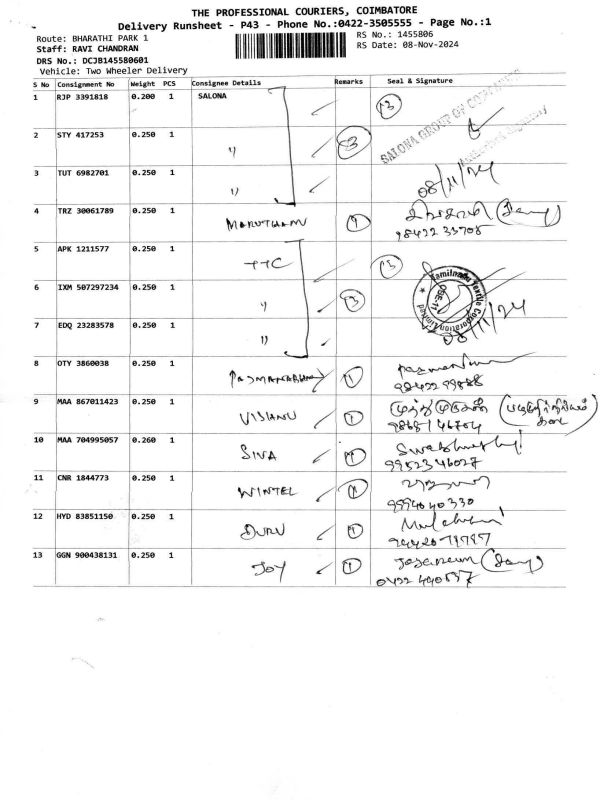 THE PROFESSIONAL COURIERS, COIMBATORE
Delivery Runsheet - P43 - Phone No.:0422-3505555 - Page No.:1
Route: BHARATHI PARK 1 RS No.: 1455806
Staff: RAVI CHANDRAN RS Date: 08-Nov-2024
DRS No.: DCJB145580601
Vehicle: Two Wheeler Delivery
S No Consignment No Weight PCS Consignee Details Remarks Seal & Signature
1 RJP 3391818 0.200 1 SALONA 3
SALONA GROUP OF COMPANIES
2 STY 417253 0.250 1 " 3
3 TUT 6982701 0.250 1 " 08/11/24
4 TRZ 30061789 0.250 1 MARUTHAM 1
98422 33708
5 APK 1211577 0.250 1 TTC 3
Tamilnadu Textile Corporation Limited
CBE-11
6 IXM 507297234 0.250 1 " 3
7 EDQ 23283578 0.250 1 " 08/11/24
8 OTY 3860038 0.250 1 PADMANABHAN 1
98422 99888
9 MAA 867011423 0.250 1 VISHNU 1 முத்து முருகன்
98681 46704
10 MAA 704995057 0.260 1 SIVA 1
99523 46027
11 CNR 1844773 0.250 1 WINTEL 1
9994040330
12 HYD 83851150 0.250 1 GURU 1
13 GGN 900438131 0.250 1 JOY 1
0422 440537